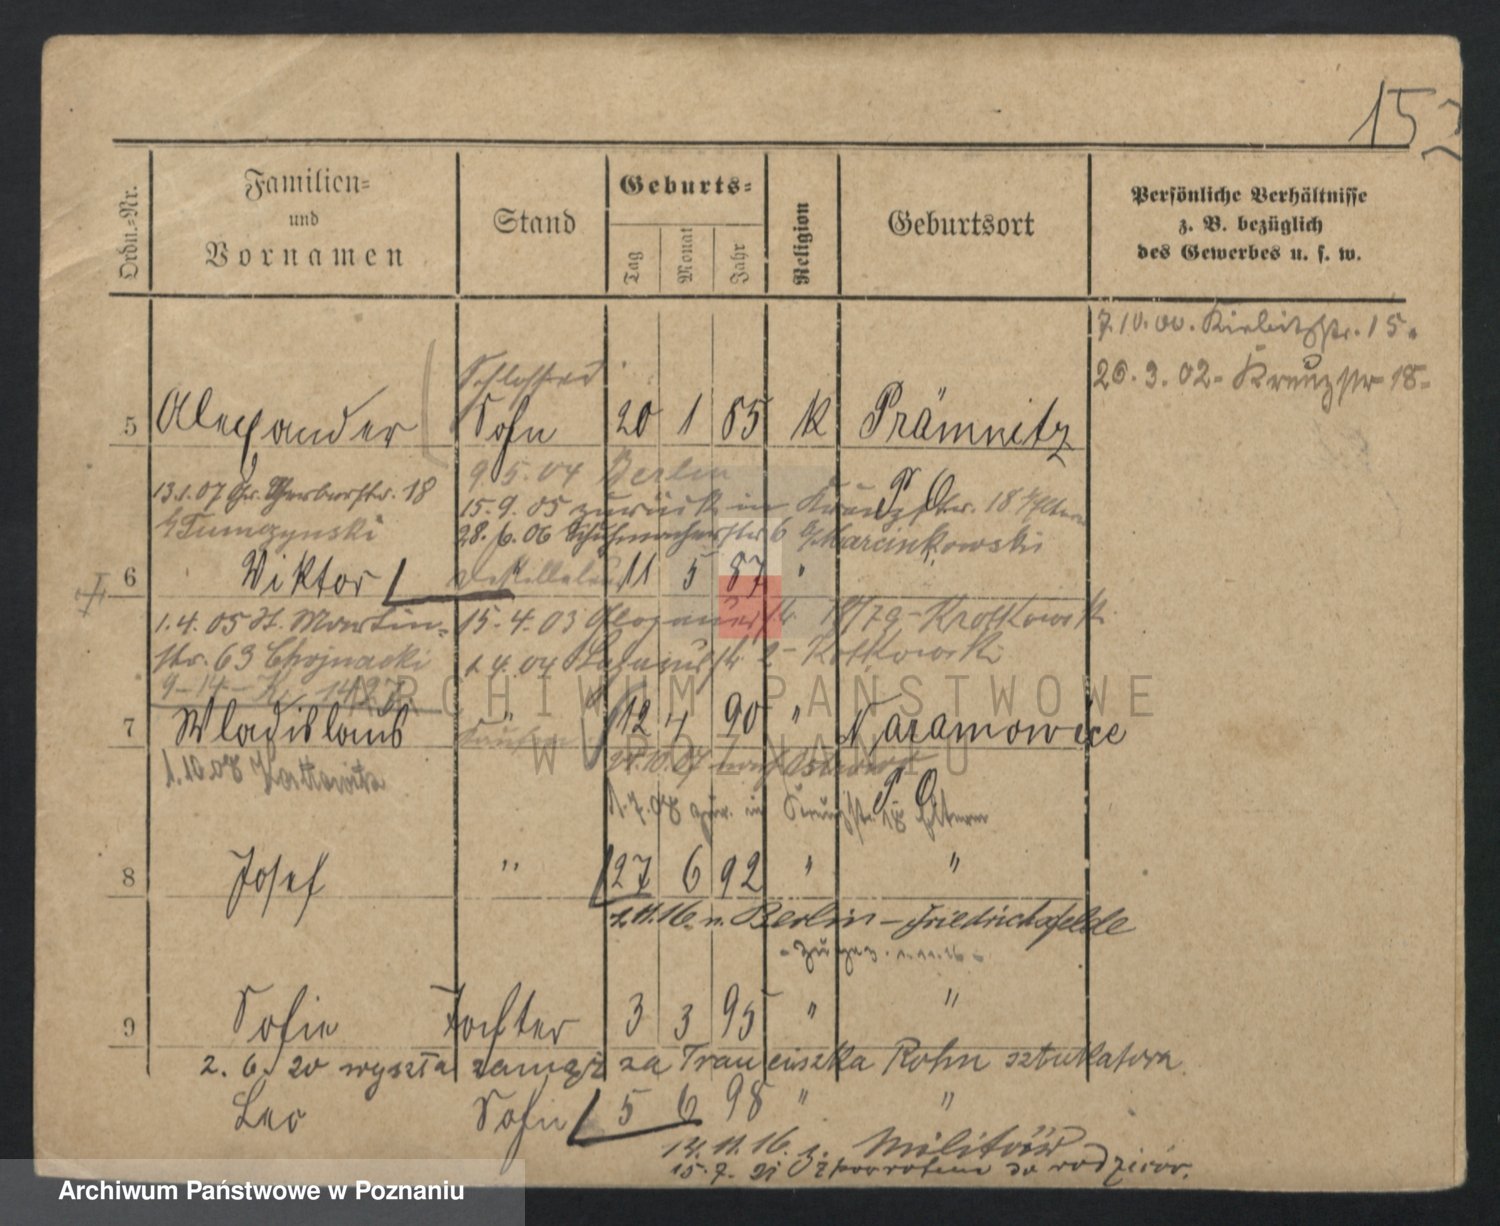 152
Ordn.=Nr.
Familien=
und
Vornamen
Stand
Geburts=
Tag
Monat
Jahr
Religion
Geburtsort
Persönliche Verhältnisse
z. B. bezüglich
des Gewerbes u. s. w.
7.10.00. str. 15.
26.3.02- Kreuzstr 18-
Schlosser
5 Alexander Sohn 20 1 85 K Prämnitz
9.5.04 Berlin
13.1.07 Gr. Gerberstr. 18
15.9.05 zurück in Kreuzstr. 18 Eltern
P. O.
b/ Tumczynski
28.6.06 Schuhmacherstr 6 b/ Marcinkowski
6 Viktor 11 5 87 "
1.4.05 St. Martin=
15.4.03 Glogauerstr. - Krotkowski
str. 63 Chojnacki
1.4.04 2- Kotkowski
7 Wladislaus " 12 4 90 " Naramowice
1.10.08 Kattowitz
P. O.
1.7.08 zur. in Kreuzstr. 18 Eltern
8 Josef " 27 6 92 " "
2.11.16 n. Berlin - Friedrichsfelde
9 Sofie Tochter 3 3 95 " "
2. 6. 20 wyszła zamąż za Franciszka Rohn sztukatora.
Leo Sohn 5 6 98 " "
14.11.16. z. Militär
15.7.21 z powrotem do rodziców.
ARCHIWUM PAŃSTWOWE
W POZNANIU
Archiwum Państwowe w Poznaniu